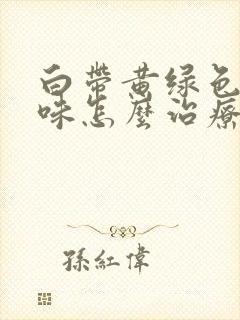 白帶黄绿色
味怎麼治療
孫紅偉